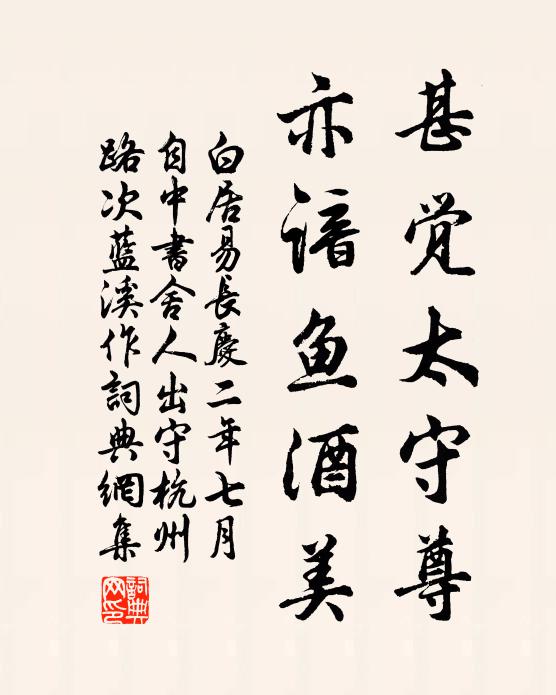 甚觉太守尊
亦谙鱼酒美
白居易長慶二年七月
自中書舍人出守杭州
路次藍溪作詞典網集
詞典网印